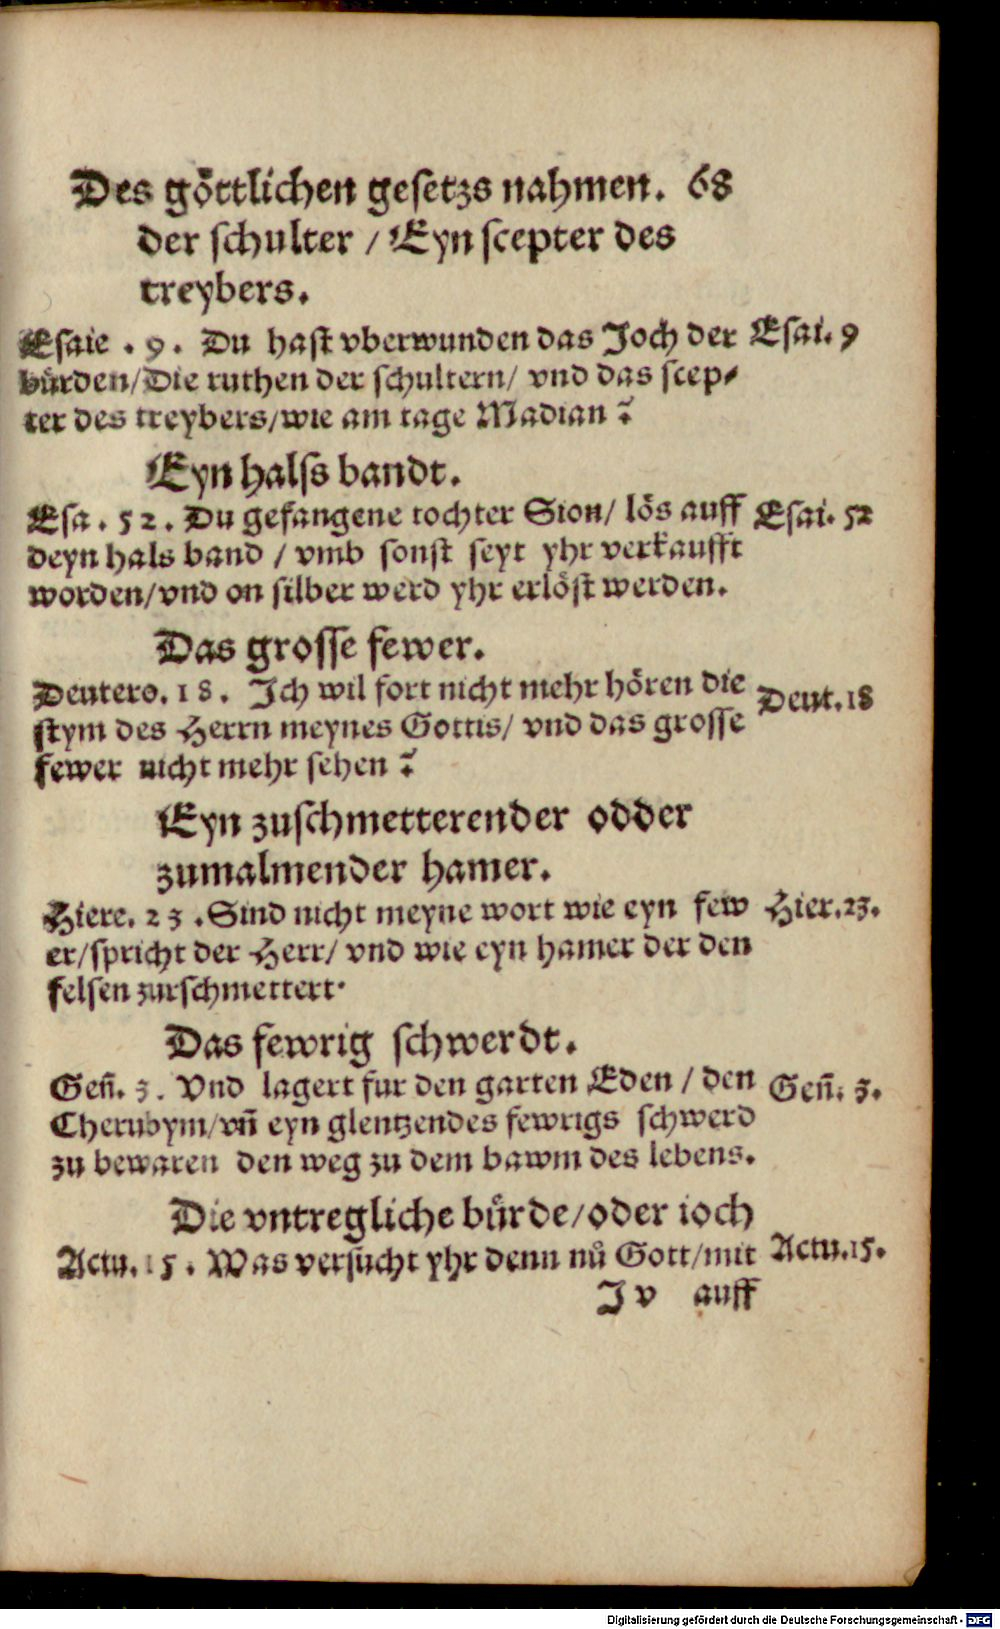 Des göttlichen gesetzs nahmen. 68
der schulter / Eyn scepter des
treybers.
Esaie . 9 . Du hast vberwunden das Joch der Esai. 9
bürden/Die ruthen der schultern/ vnd das scep⸗
ter des treybers/wie am tage Madian ?
Eyn halss bandt.
Esa . 52 . Du gefangene tochter Sion/ lös auff Esai. 52
deyn hals band / vmb sonst seyt yhr verkaufft
worden/vnd on silber werd yhr erlöst werden.
Das grosse fewer.
Deutero. 18 . Ich wil fort nicht mehr hören die Deut. 18
stym des Herrn meynes Gottis/ vnd das grosse
fewer nicht mehr sehen ?
Eyn zuschmetterender odder
zumalmender hamer.
Hiere. 23 .Sind nicht meyne wort wie eyn few Hier.23.
er/spricht der Herr/ vnd wie eyn hamer der den
felsen zurschmettert·
Das fewrig schwerdt.
Geñ. 3. Vnd lagert fur den garten Eden / den Geñ. 3.
Cherubym/vñ eyn glentzendes fewrigs schwerd
zu bewaren den weg zu dem bawm des lebens.
Die vntregliche bürde/oder ioch
Actu. 15 . Was versucht yhr denn nů Gott/mit Actu.15.
J v auff
Digitalisierung gefördert durch die Deutsche Forschungsgemeinschaft - DFG